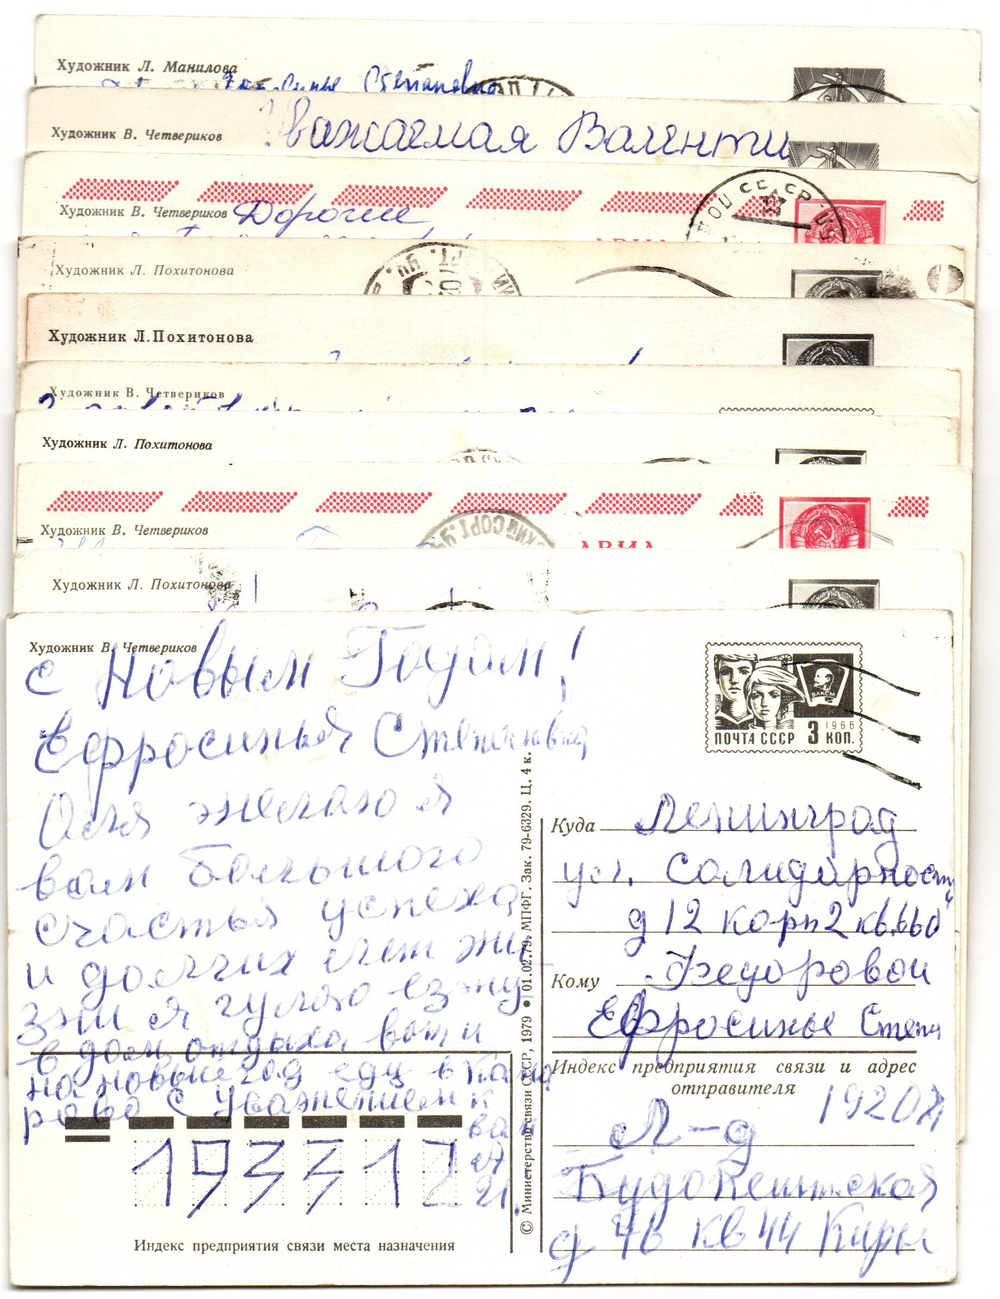 Художник Л. Манилова
Степановна
Художник В. Четвериков
Уважаемая Валенти
Художник В. Четвериков
Дорогие
АВИА
Художник Л. Похитонова
Художник Л. Похитонова
Художник В. Четвериков
Художник Л. Похитонова
Художник В. Четвериков
АВИА
Художник Л. Похитонова
Художник В. Четвериков
с Новым Годом!
Ефросинья Степановна
Оля желаю я
вам большого
счастья успеха
и долгих лет жи
зни я гуляю езжу
в дом отдыха
на новый год еду в
рово с уважением к
вам
ВЛКСМ
1966
ПОЧТА СССР 3 КОП.
Куда Ленинград
ул. Солидарности
д 12 корп 2 кв.660
Кому Федоровой
Ефросинье Степ
Индекс предприятия связи и адрес
отправителя
Л-д
д 7б кв 44
193312
Индекс предприятия связи места назначения
© Министерство связи СССР, 1979 ● 01.02.79. МПФГ. Зак. 79-6329. Ц. 4 к.